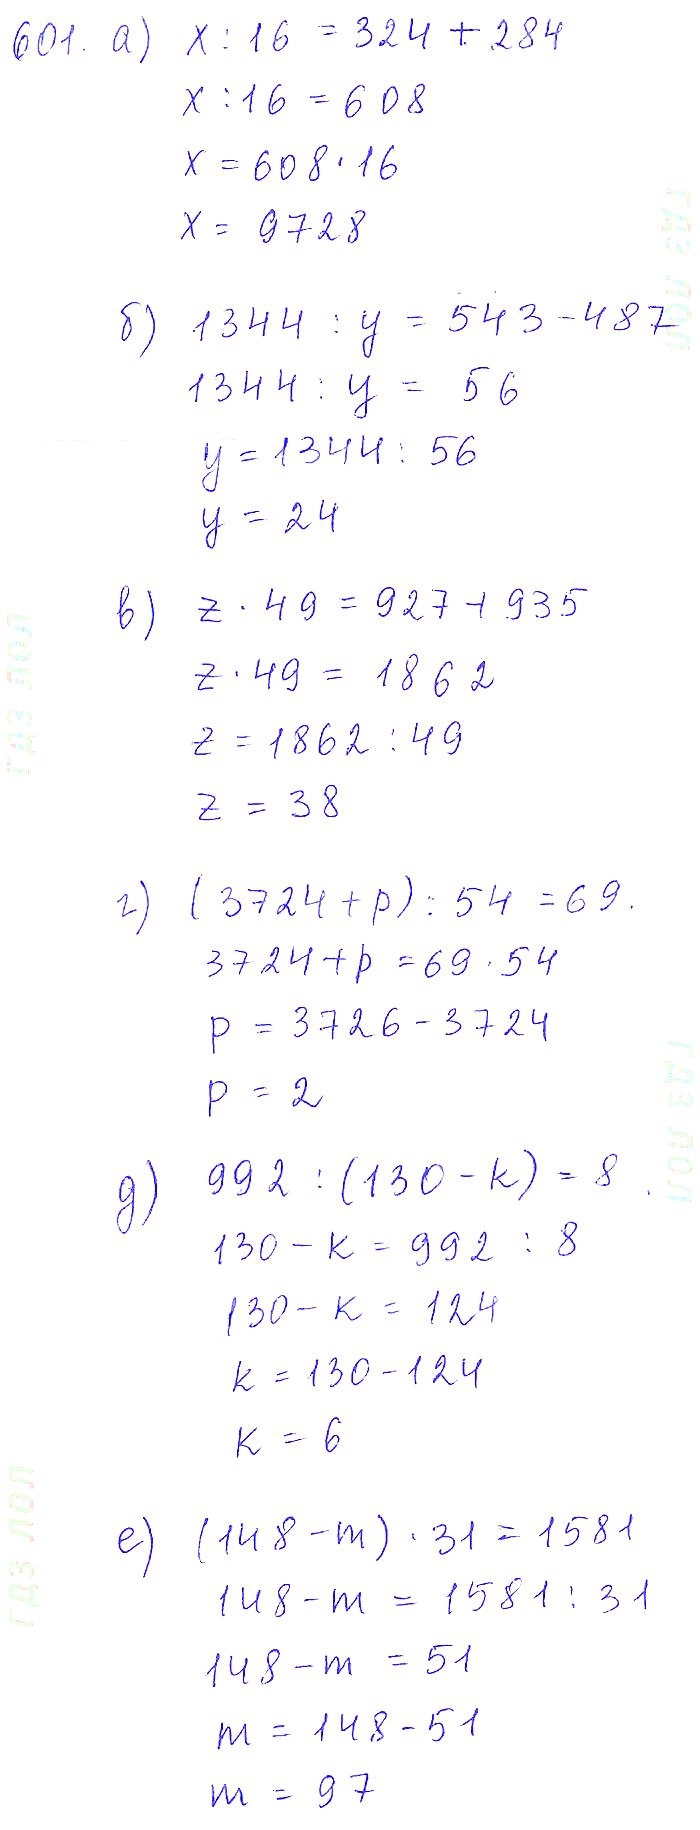 601. а) x : 16 = 324 + 284
x : 16 = 608
x = 608 · 16
x = 9728
б) 1344 : y = 543 - 487
1344 : y = 56
y = 1344 : 56
y = 24
в) z · 49 = 927 + 935
z · 49 = 1862
z = 1862 : 49
z = 38
г) (3724 + p) : 54 = 69.
3724 + p = 69 · 54
p = 3726 - 3724
p = 2
д) 992 : (130 - k) = 8.
130 - k = 992 : 8
130 - k = 124
k = 130 - 124
k = 6
е) (148 - m) · 31 = 1581
148 - m = 1581 : 31
148 - m = 51
m = 148 - 51
m = 97
гдз лол
гдз лол
гдз лол
гдз лол